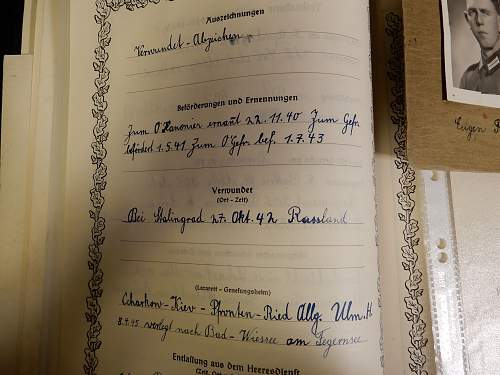 Auszeichnungen
Verwundet-Abzeichen
Beförderungen und Ernennungen
Zum O'Kanonier ernant 22.11.40 Zum Gefr.
befördert 1.5.41 Zum O'Gefr. bef. 1.7.43
Verwundet
(Ort - Zeit)
Bei Stalingrad 27. Okt. 42 Russland
(Lazarett - Genesungsheim)
Charkow-Kiev-Pfronten-Ried Allg. Ulm.H
8.4.45 verlegt nach Bad-Wiessee am Tegernsee
Entlassung aus dem Heeresdienst
Eugen